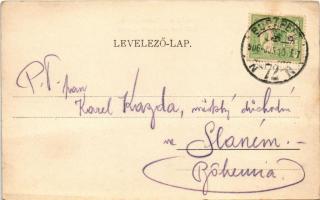 LEVELEZŐ-LAP.
P.T. pan
Karel Kazda, městský důchodní
ve Slaném.-
Bohemia.
BUDAPEST
72